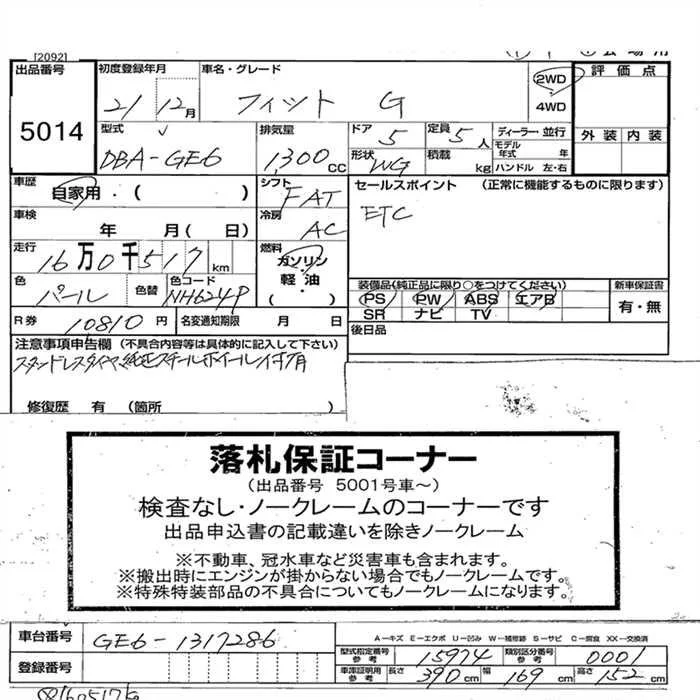 [2092]
出品番号
5014
初度登録年月
21 12月
車名・グレード
フィット G
2WD
4WD
評価点
外装 内装
型式
DBA-GE6
排気量
1,300 CC
ドア 5
定員 5人
形状 WG
積載 kg
ディーラー・並行
モデル年式 年
ハンドル 左・右
車歴
自家用・( )
シフト
FAT
セールスポイント (正常に機能するものに限ります)
ETC
車検
年 月( 日)
冷房
AC
走行
16万0千517km
燃料
ガソリン
軽油
・( )
色
パール
色替
色コード
NH624P
装備品(純正品に限り○をつけてください)
PS PW ABS エアB
SR ナビ TV
新車保証書
有・無
R券 10810円
名変通知期限 月 日
後日品
注意事項申告欄 (不具合内容等は具体的に記入して下さい)
スタッドレスタイヤ、純正スチールホイール付有
修復歴 有 (箇所
落札保証コーナー
(出品番号 5001号車~)
検査なし・ノークレームのコーナーです
出品申込書の記載違いを除きノークレーム
※不動車、冠水車など災害車も含まれます。
※搬出時にエンジンが掛からない場合でもノークレームです。
※特殊特装部品の不具合についてもノークレームになります。
車台番号 GE6-1317286
A－キズ E－エクボ U－凹み W－補修跡 S－サビ C－腐食 XX－交換済
型式指定番号 参考 15974
類別区分番号 参考 0001
登録番号
車庫証明用 参考 長さ 390cm 幅 169cm 高さ 152cm